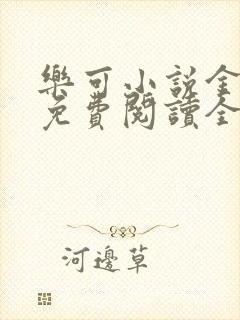 樂可小說全
免費閱讀全
河邊草